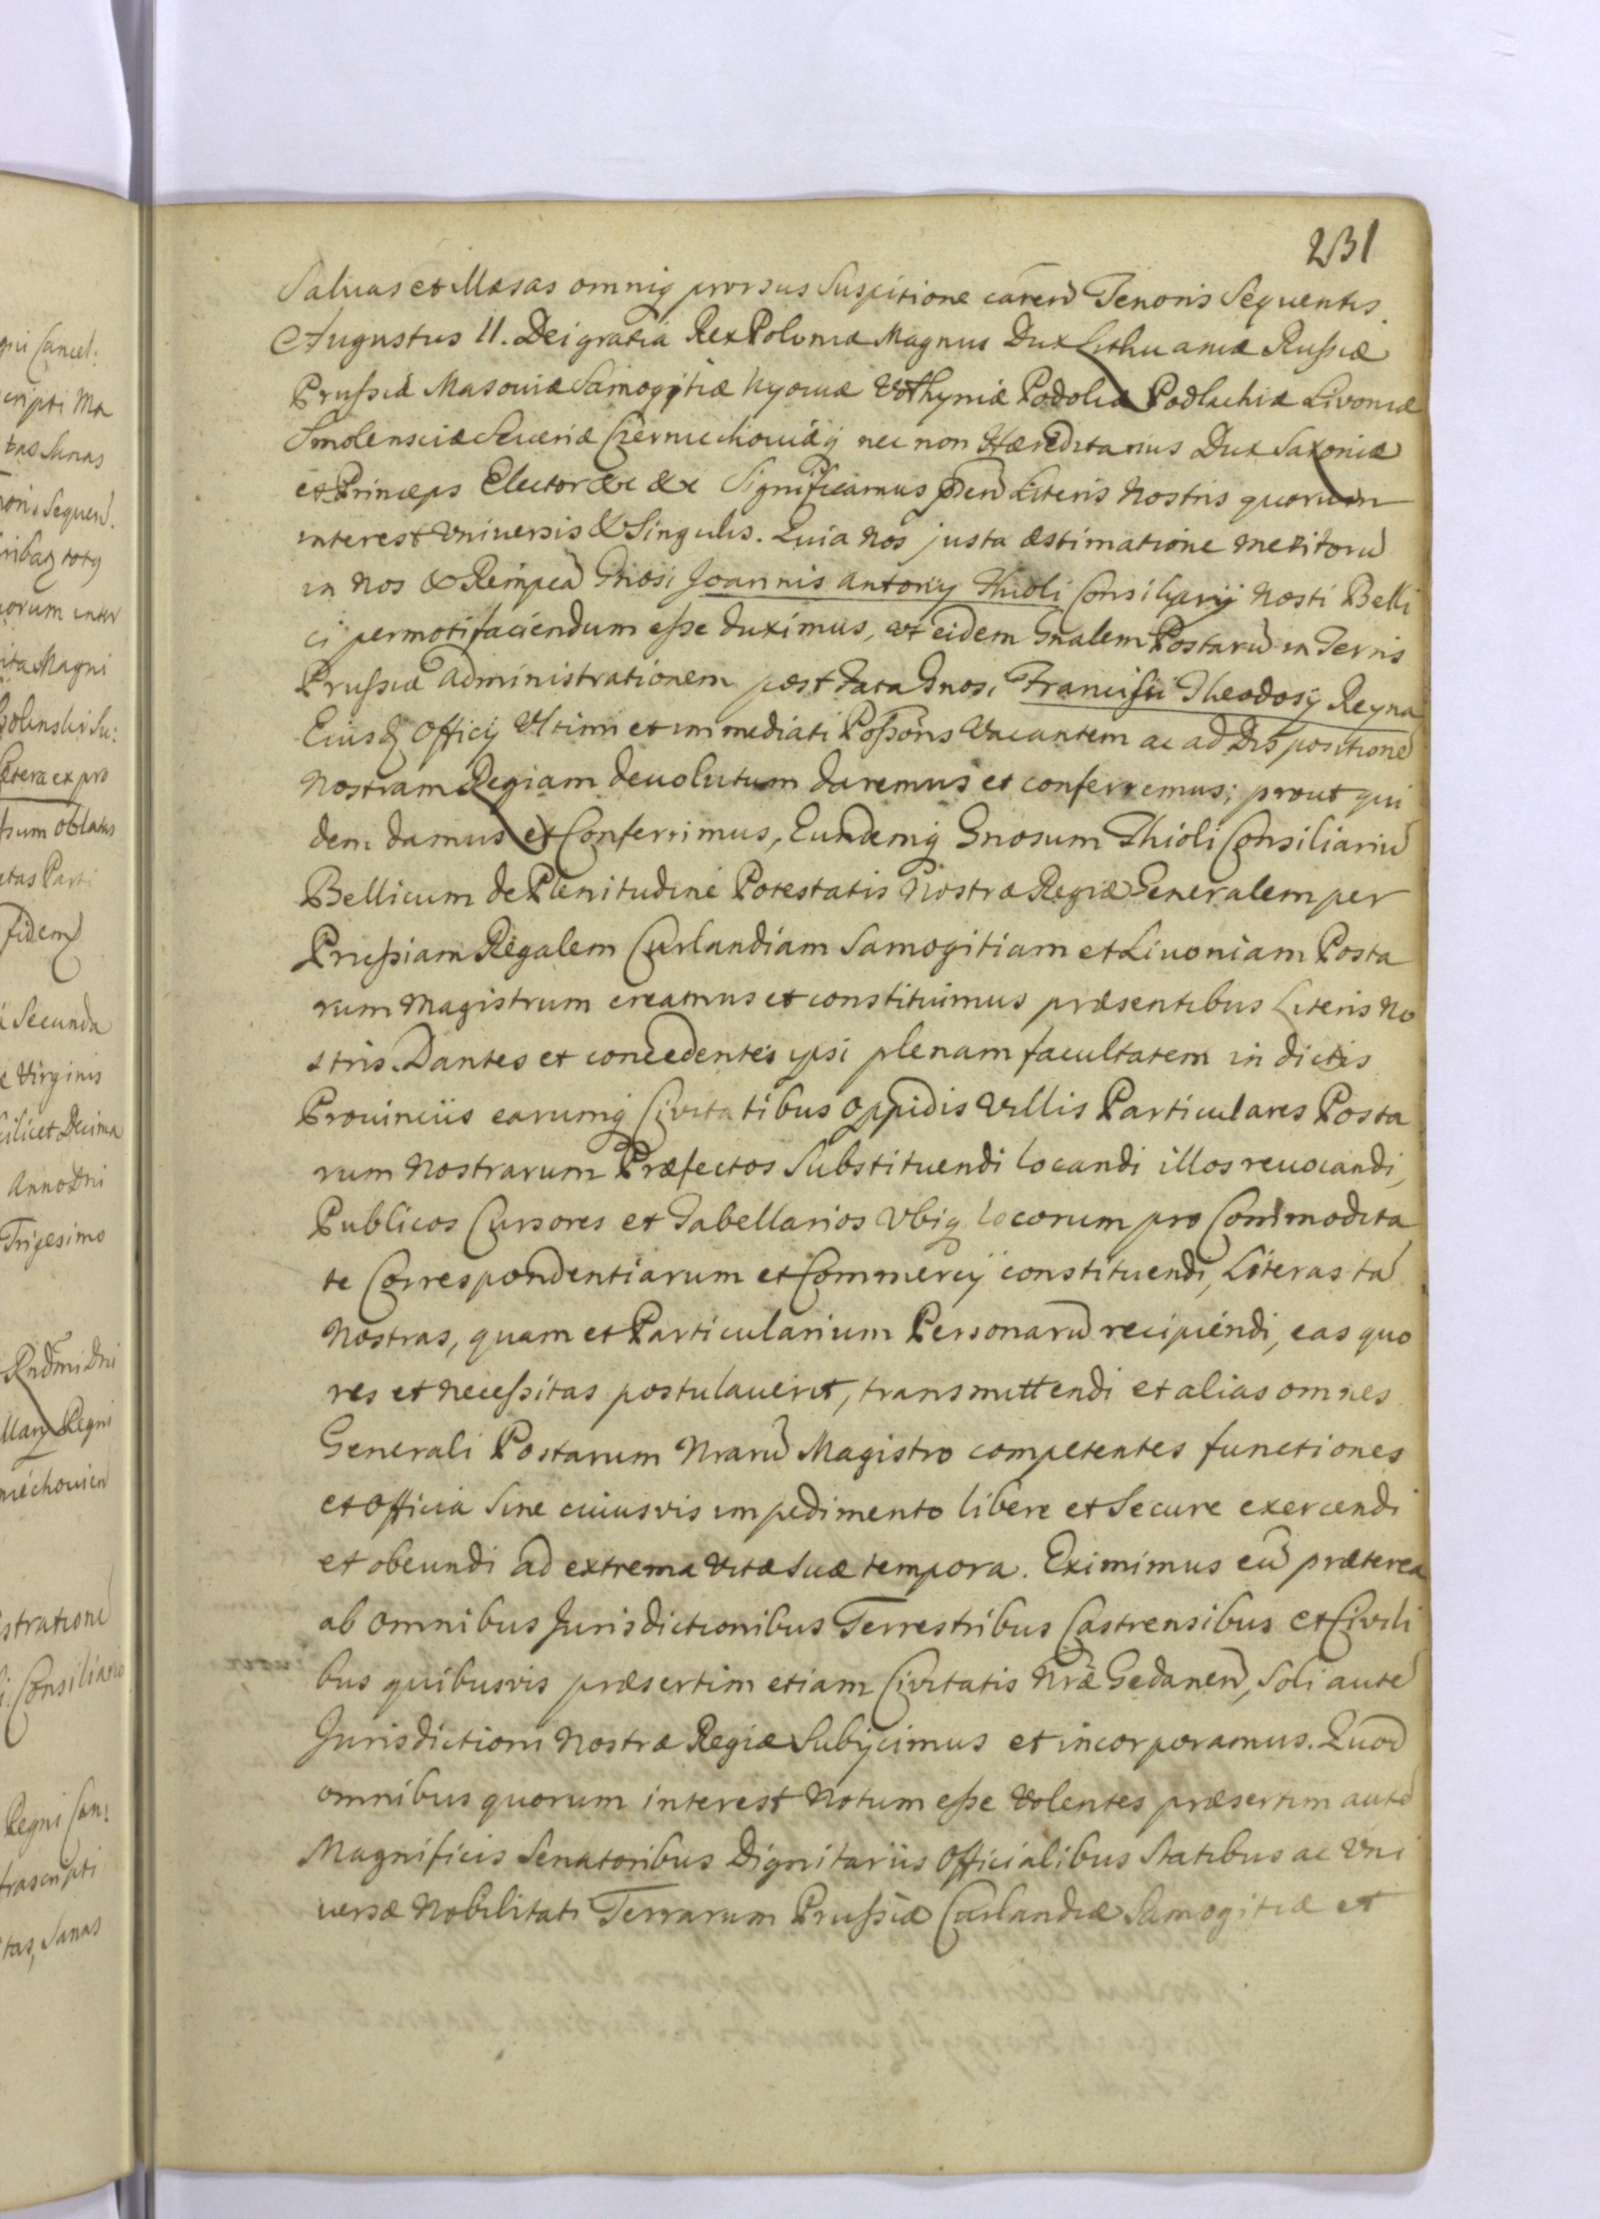 231
Saluas et Illæsas omniq prorsus Suspitione careñ Tenoris Sequentis.
Augustus II. Dei gratia Rex Poloniæ Magnus Dux Lithuaniæ Rußiæ
Prußiæ Masouiæ Samogitiæ Kyouiæ Volhyniæ Podoliæ Podlachiæ Livoniæ
Smolensciæ Seueriæ Czerniechouiæq nec non Hæreditarius Dux Saxoniæ
et Princeps Elector &c &c Significamus pñ Literis Nostris quorum
interest Vniuersis & Singulis. Quia Nos justa æstimatione meritorũ
in Nos & Rempcã Gnosi Joannis Antonij Thioli Consiliarij Nosti Belli
ci permoti faciendum eße duximus, vt eidem Gnalem Postarũ in Terris
Prußiæ administrationem post fata Gnosi Francisci Theodosij Reyna
Eiusq Officij Vltimi et immediati Poßoris Vacantem ac ad Dispositionẽ
Nostram Regiam deuolutum daremus et conferremus; prout qui
dem damus et Conferrimus, Eundemq Gnosum Thioli Consiliariũ
Bellicum de Plenitudine Potestatis Nostræ Regiæ Generalem per
Prußiam Regalem Curlandiam Samogitiam et Liuoniam Posta
rum Magistrum creamus et constituimus præsentibus Literis No
stris. Dantes et concedentes ipsi plenam facultatem in dictis
Prouincijs earumq Civitatibus Oppidis Villis Particulares Posta
rum Nostrarum Præfectos Substituendi locandi illos reuocandi,
Publicos Cursores et Tabellarios Vbiq locorum pro Commodita
te Correspondentiarum et Commercij constituendi, Literas tã
Nostras, quam et Particularium Personarũ recipiendi, eas quo
res et neceßitas postulauerit, transmittendi et alias omnes
Generali Postarum Nrarũ Magistro competentes functiones
et Officia Sine cuiusvis impedimento libere et Secure exercendi
et obeundi ad extrema Vitæ Suæ tempora. Eximimus eũ præterea
ab omnibus Jurisdictionibus Terrestribus Castrensibus et Civili
bus quibusvis præsertim etiam Civitatis Nræ Gedaneñ, Soli autẽ
Jurisdictioni Nostræ Regiæ Subijcimus et incorporamus. Quod
omnibus quorum interest Notum eße Volentes præsertim autẽ
Magnificis Senatoribus Dignitarijs Officialibus Statibus ac Vni
uersæ Nobilitati Terrarum Prußiæ Curlandiæ Samogitiæ et